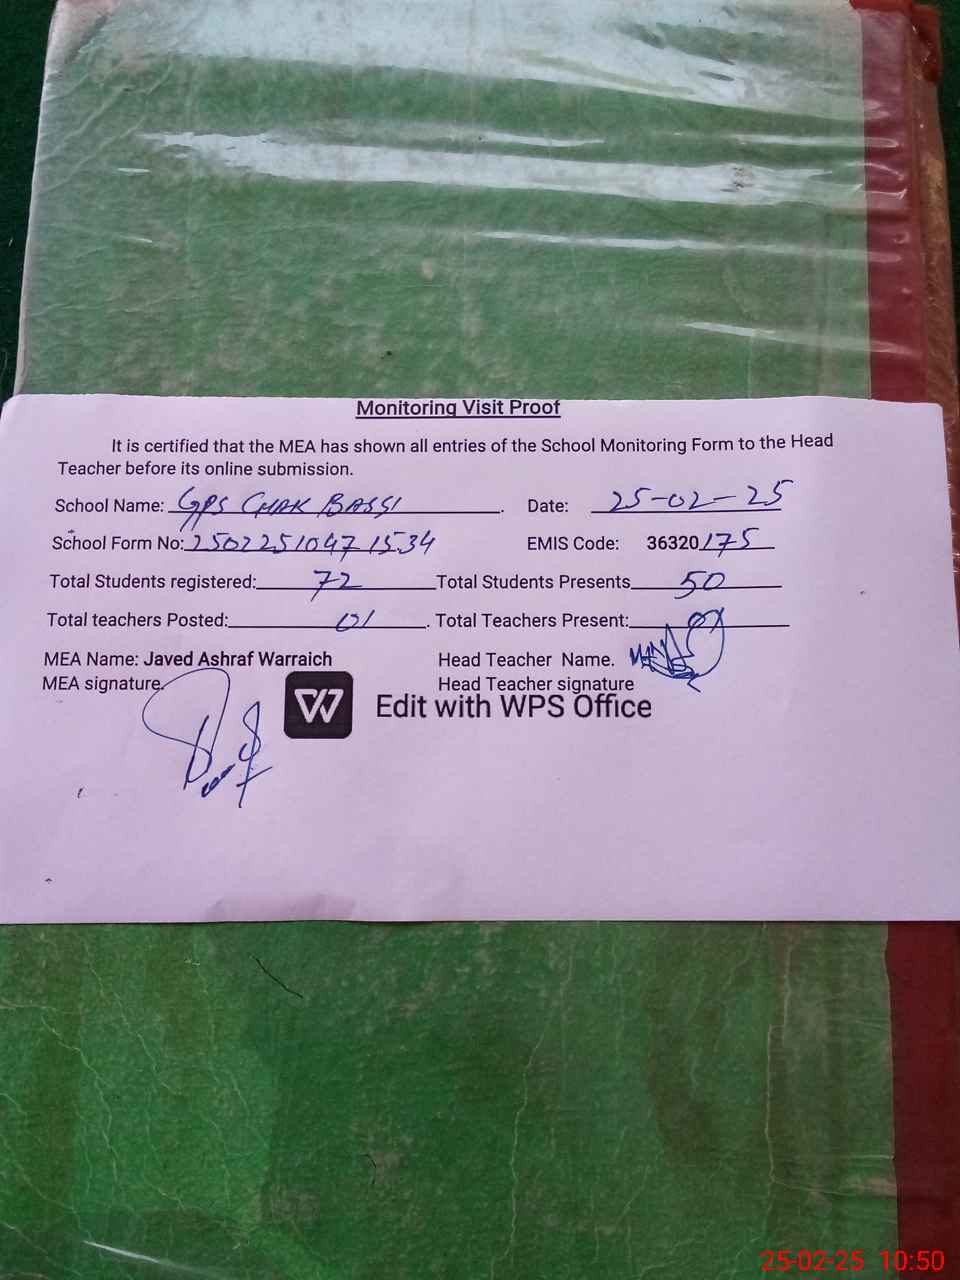 Monitoring Visit Proof
It is certified that the MEA has shown all entries of the School Monitoring Form to the Head
Teacher before its online submission.
School Name: GPS CHAK BASSI. Date: 25-02-25
School Form No: 25022510471534 EMIS Code: 36320175
Total Students registered: 72 Total Students Presents 50
Total teachers Posted: 01. Total Teachers Present: 01
MEA Name: Javed Ashraf Warraich Head Teacher Name.
MEA signature. Head Teacher signature
W Edit with WPS Office
25-02-25 10:50